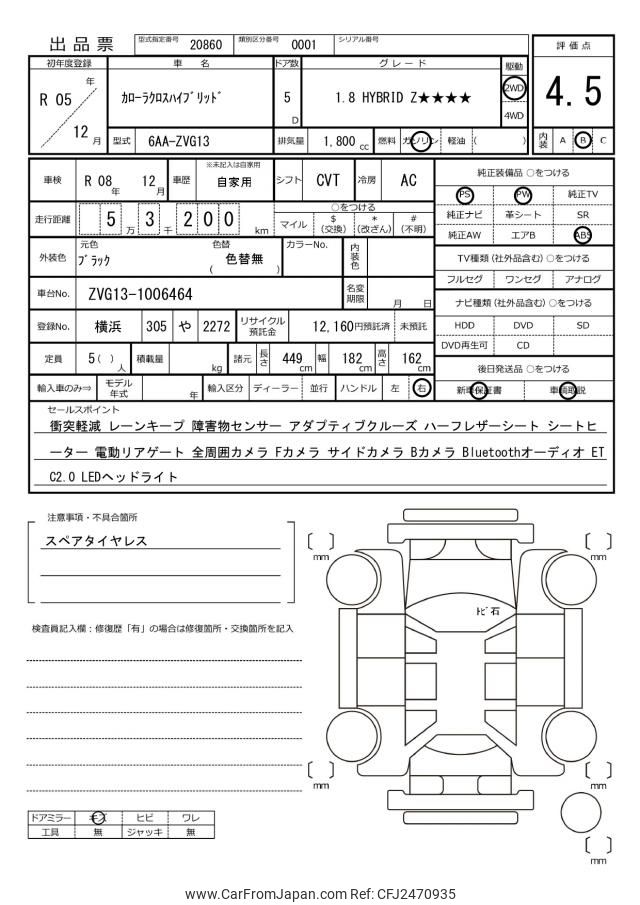 出品票 型式指定番号 20860 類別区分番号 0001 シリアル番号
評価点
4.5
内装 A B C
初年度登録 車名 ドア数 グレード 駆動
R 05 年 12 月
ｶﾛｰﾗｸﾛｽﾊｲﾌﾞﾘｯﾄﾞ
5 D
1.8 HYBRID Z★★★★
2WD
4WD
型式 6AA-ZVG13 排気量 1,800 cc 燃料 ガソリン 軽油 ( )
車検 R 08 年 12 月 車歴 ※未記入は自家用 自家用 シフト CVT 冷房 AC
走行距離 5 万 3 千 2 0 0 km
○をつける
マイル $(交換) *(改ざん) #(不明)
外装色 元色 ﾌﾞﾗｯｸ 色替 ( 色替無 ) カラーNo. 内装色
車台No. ZVG13-1006464 名変期限 月 日
登録No. 横浜 305 や 2272 リサイクル預託金 12,160円預託済 未預託
定員 5( ) 人 積載量 kg 諸元 長さ 449 cm 幅 182 cm 高さ 162 cm
輸入車のみ⇒ モデル年式 年 輸入区分 ディーラー 並行 ハンドル 左 右
純正装備品 ○をつける
PS PW 純正TV
純正ナビ 革シート SR
純正AW エアB ABS
TV種類 (社外品含む) ○をつける
フルセグ ワンセグ アナログ
ナビ種類 (社外品含む) ○をつける
HDD DVD SD
DVD再生可 CD
後日発送品 ○をつける
新車保証書 車輌取説
セールスポイント
衝突軽減 レーンキープ 障害物センサー アダプティブクルーズ ハーフレザーシート シートヒ
ーター 電動リアゲート 全周囲カメラ Fカメラ サイドカメラ Bカメラ Bluetoothオーディオ ET
C2.0 LEDヘッドライト
注意事項・不具合箇所
スペアタイヤレス
検査員記入欄：修復歴「有」の場合は修復箇所・交換箇所を記入
ﾄﾋﾞ石
mm
mm
mm
mm
mm
ドアミラー キズ ヒビ ワレ
工具 無 ジャッキ 無
www.CarFromJapan.com Ref: CFJ2470935